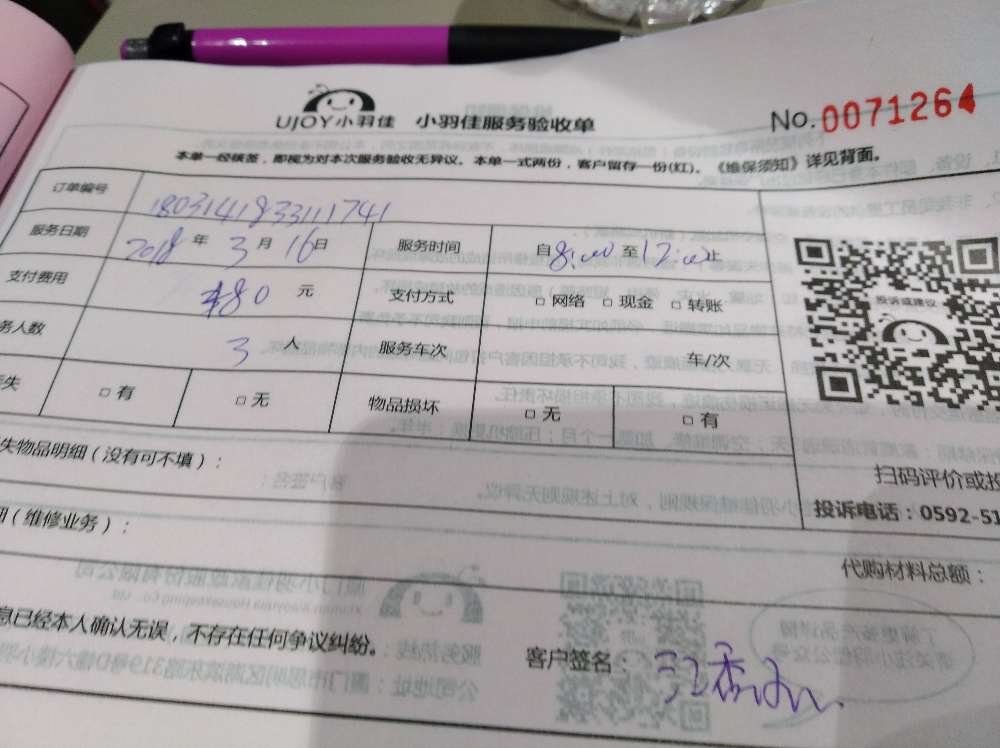 UJOY小羽佳 小羽佳服务验收单
No. 0071264
本单一经核签，即视为对本次服务验收无异议。本单一式两份，客户留存一份(红)。《维保须知》详见背面。
订单编号 180314183311741
服务日期 2018 年 3 月 16 日 服务时间 自 8:00 至 12:00 止
支付费用 480 元 支付方式 □ 网络 □ 现金 □ 转账
务人数 3 人 服务车次 车/次
失 □ 有 □ 无 物品损坏 □ 无 □ 有
投诉或建议
失物品明细（没有可不填）：
扫码评价或投
投诉电话：0592-51
（维修业务）：
代购材料总额：
息已经本人确认无误，不存在任何争议纠纷。
客户签名：